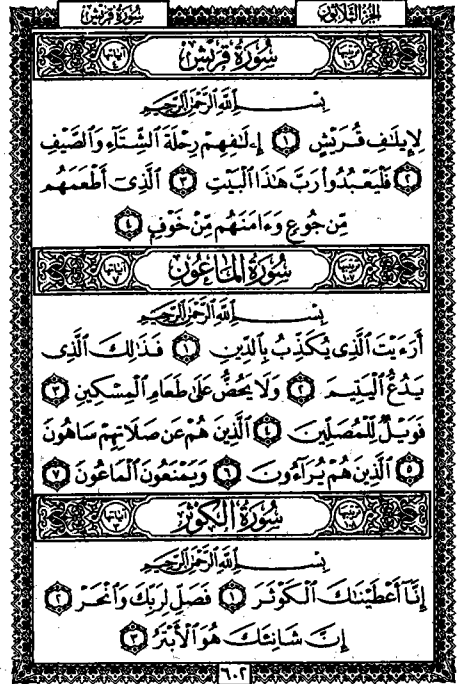 سُورَةُ قُرَيْشٍ الجُزْءُ الثَّلَاثُونَ
سُورَةُ قُرَيْشٍ
بِسْمِ اللَّهِ الرَّحْمَٰنِ الرَّحِيمِ
لِإِيلَٰفِ قُرَيْشٍ ١ إِۦلَٰفِهِمْ رِحْلَةَ ٱلشِّتَآءِ وَٱلصَّيْفِ
٢ فَلْيَعْبُدُوا۟ رَبَّ هَٰذَا ٱلْبَيْتِ ٣ ٱلَّذِىٓ أَطْعَمَهُم
مِّن جُوعٍ وَءَامَنَهُم مِّنْ خَوْفٍۭ ٤
سُورَةُ المَاعُونِ
بِسْمِ اللَّهِ الرَّحْمَٰنِ الرَّحِيمِ
أَرَءَيْتَ ٱلَّذِى يُكَذِّبُ بِٱلدِّينِ ١ فَذَٰلِكَ ٱلَّذِى
يَدُعُّ ٱلْيَتِيمَ ٢ وَلَا يَحُضُّ عَلَىٰ طَعَامِ ٱلْمِسْكِينِ ٣
فَوَيْلٌ لِّلْمُصَلِّينَ ٤ ٱلَّذِينَ هُمْ عَن صَلَاتِهِمْ سَاهُونَ
٥ ٱلَّذِينَ هُمْ يُرَآءُونَ ٦ وَيَمْنَعُونَ ٱلْمَاعُونَ ٧
سُورَةُ الكَوْثَرِ
بِسْمِ اللَّهِ الرَّحْمَٰنِ الرَّحِيمِ
إِنَّآ أَعْطَيْنَٰكَ ٱلْكَوْثَرَ ١ فَصَلِّ لِرَبِّكَ وَٱنْحَرْ ٢
إِنَّ شَانِئَكَ هُوَ ٱلْأَبْتَرُ ٣
٦٠٢